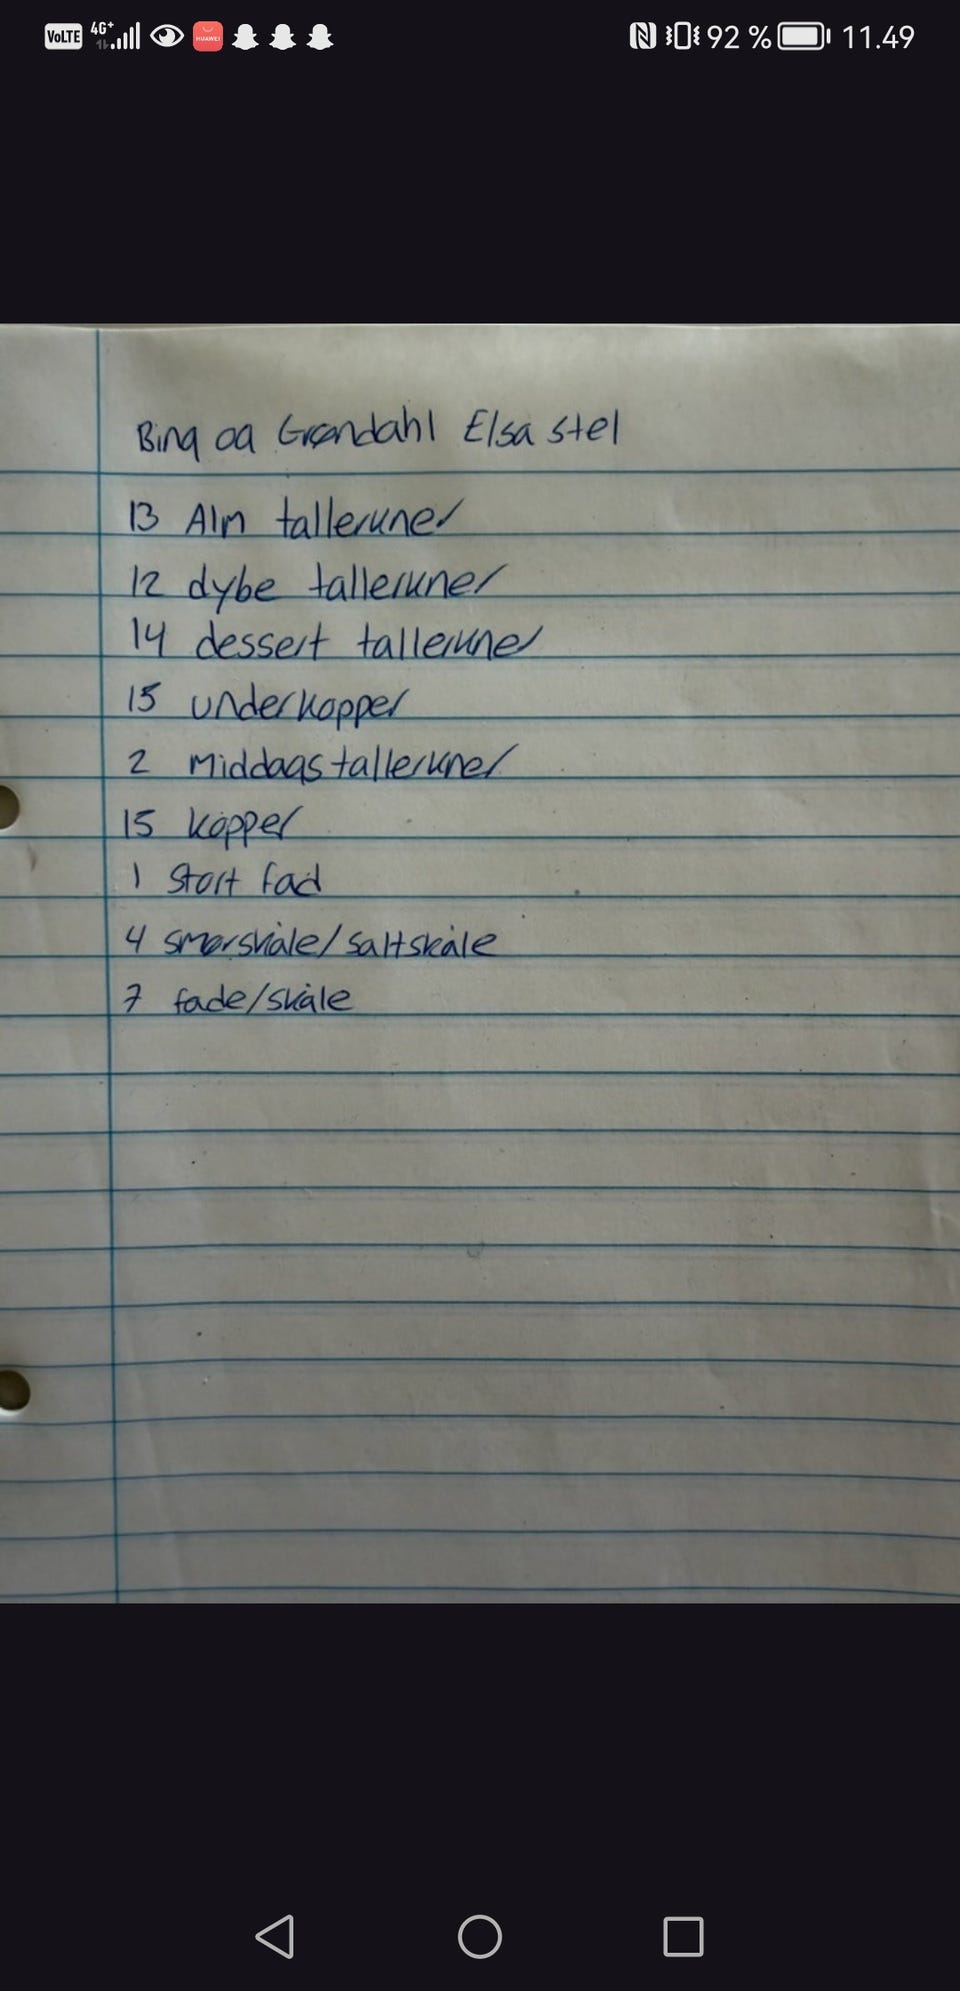 VoLTE 4G+ HUAWEI 92 % 11.49
Bing og Grøndahl Elsa stel
13 Alm tallerkner
12 dybe tallerkner
14 dessert tallerkner
15 underkopper
2 Middags tallerkner
15 kopper
1 Stort fad
4 smørskåle/saltskåle
7 fade/skåle